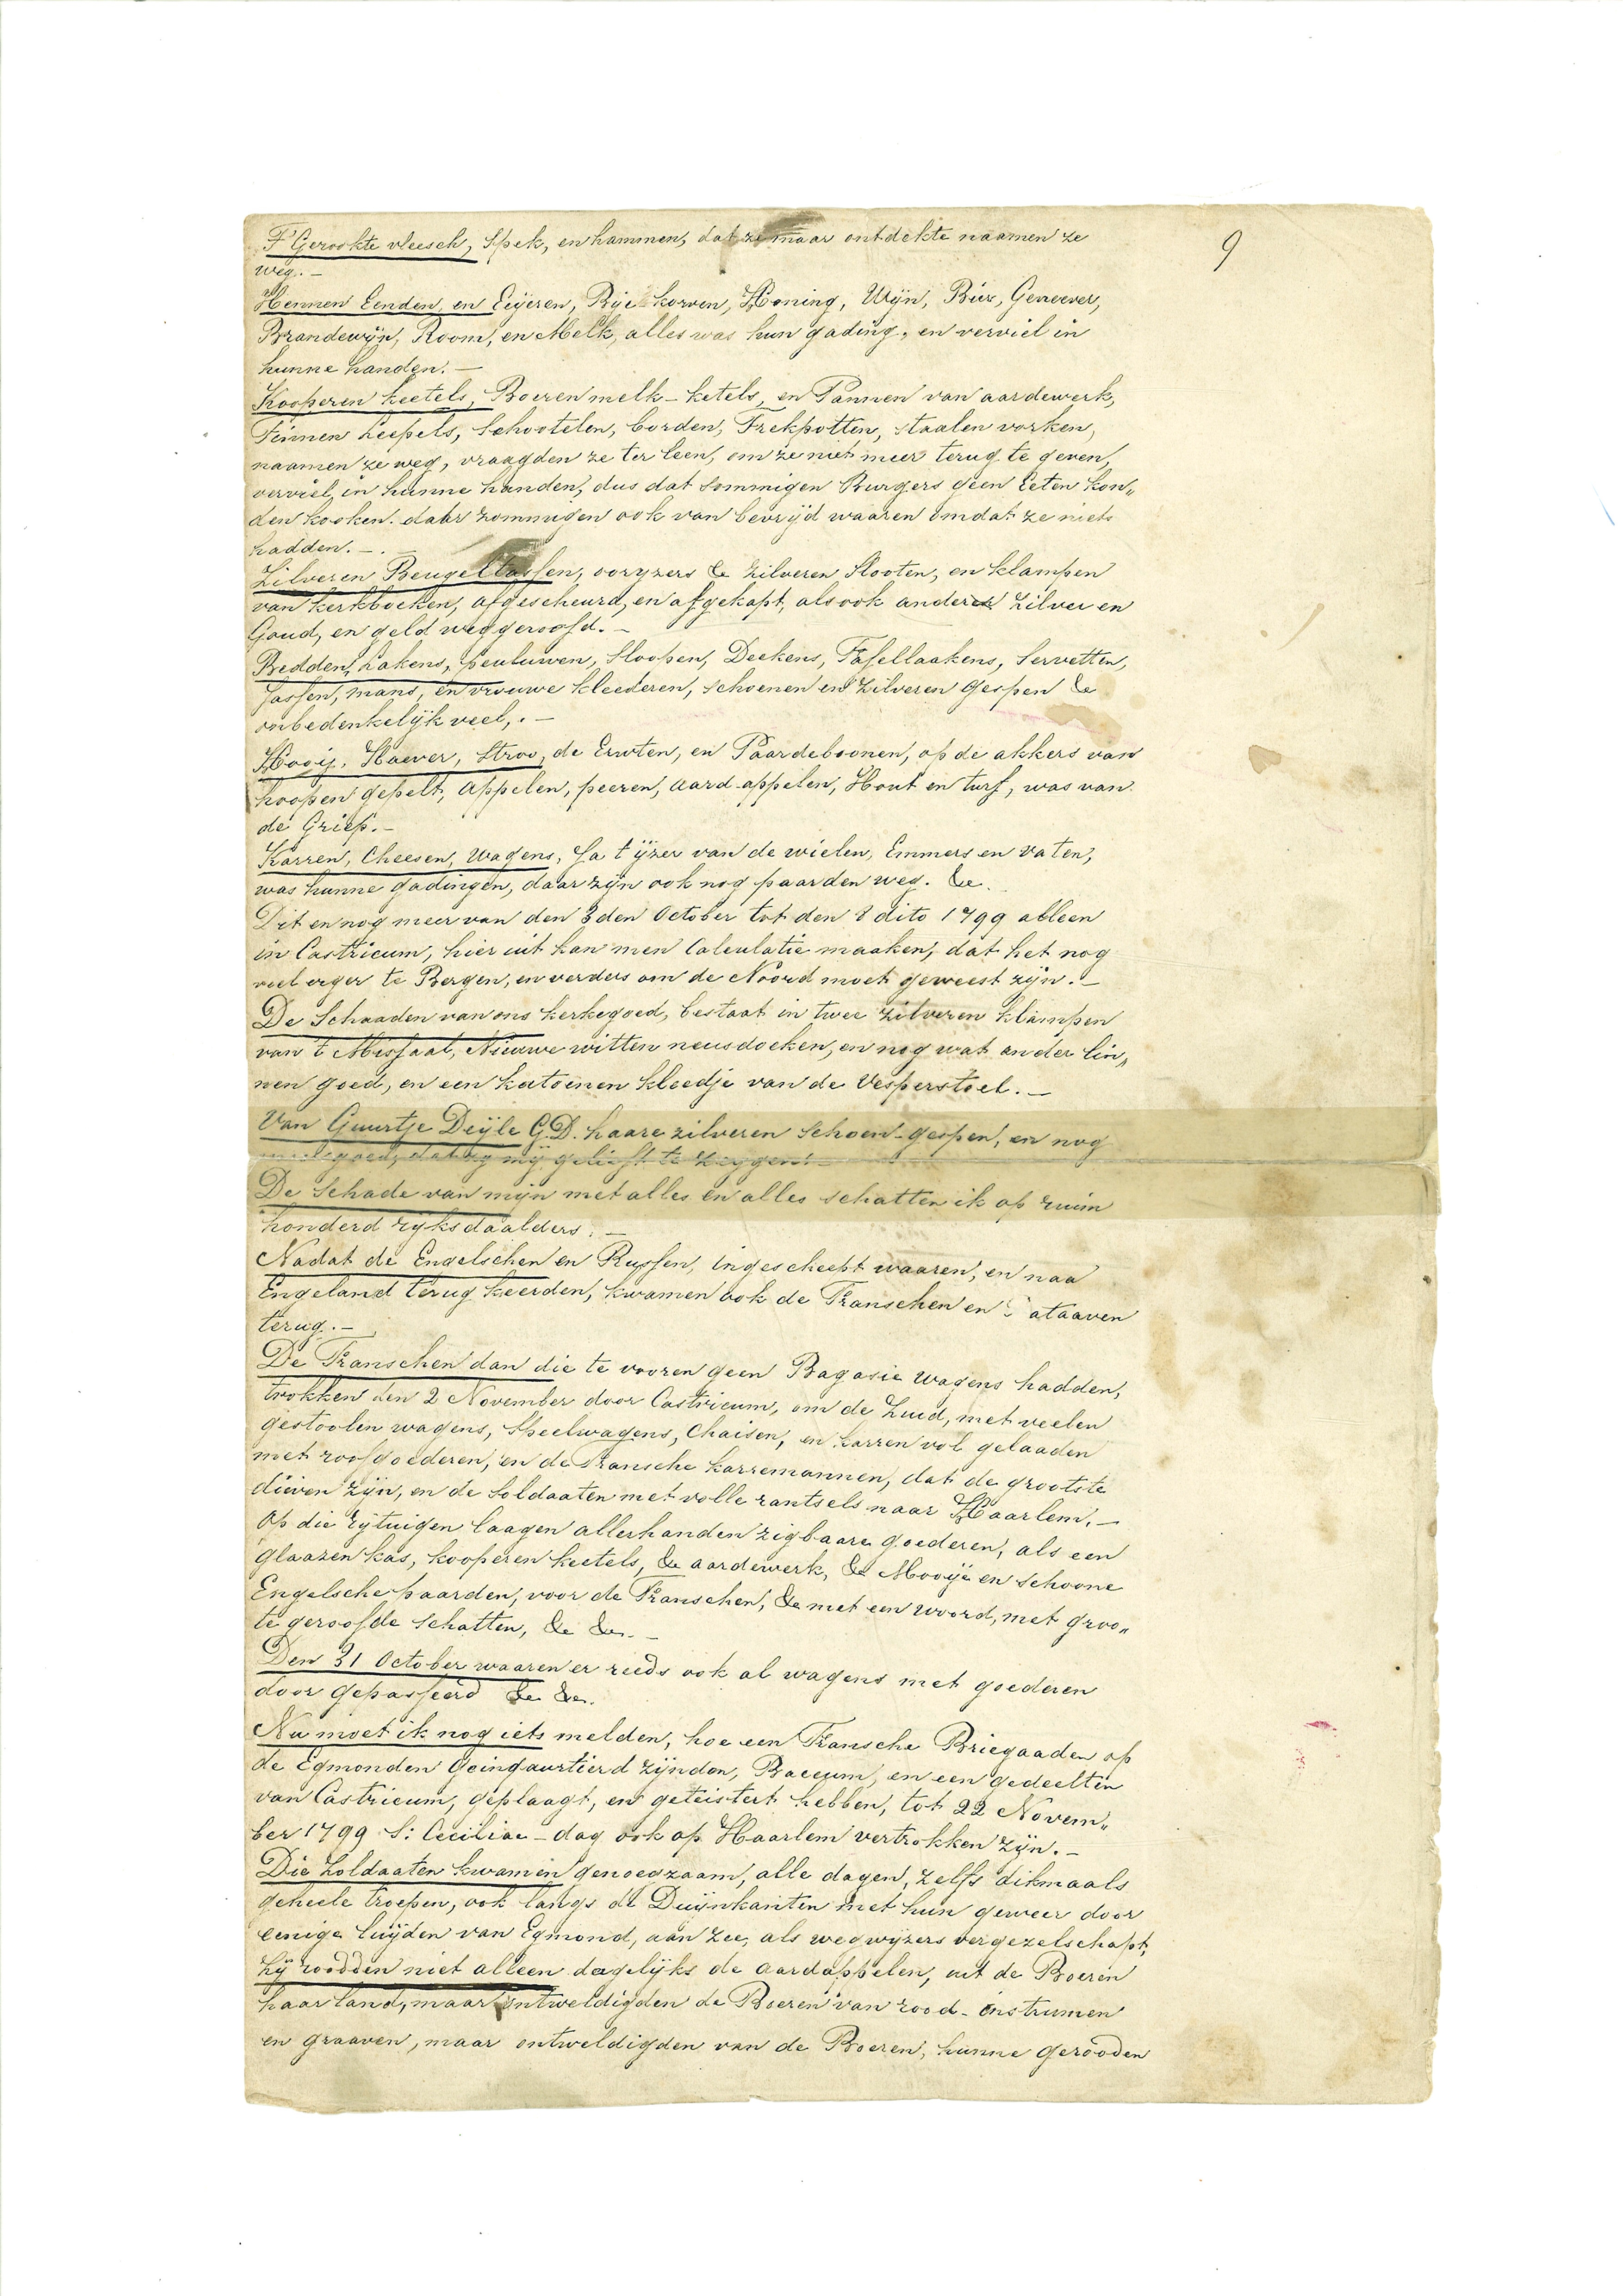 9
T Gerookte vleesch, Spek, en hammen, dat ze maar ontdekte naamen ze
weg. —
Hennen Eenden, en Eeijeren, Bije korven, Honing, Wijn, Bier, Genever,
Brandewijn, Room, en Melk, alles was hun gading, en verviel in
hunne handen. —
Kooperen keetels, Boeren melk-ketels, en Pannen van aardewerk,
Tinnen Leepels, Schootelen, borden, Trekpotten, staalen vorken,
naamen ze weg, vraagden ze ter leen, om ze niet meer terug te geven,
verviel in hunne handen, dus dat sommigen Burgers geen Eeten kon„
den kooken. daar zommigen ook van bevrijd waaren omdat ze niets
hadden. —.
Zilveren Beugeltassen, ooryzers &c zilveren Slooten, en klampen
van kerkboeken, afgescheurd, en afgekapt, als ook anderen Zilver en
Goud, en geld weggeroofd. —
Bedden, Lakens, peuluwen, Sloopen, Deekens, Tafellaakens, Servetten,
Jassen, mans, en vrouwe kleederen, schoenen en zilveren Gespen &c
onbedenkelijk veel,. —
Hooij, Haever, Stroo, de Erwten, en Paardeboonen, op de akkers van
hoopen gepelt, appelen, peeren, aard-appelen, Hout en turf, was van
de Griep. —
Karren, Cheesen, Wagens, Ja t ijzer van de wielen, Emmers en vaten,
was hunne gadingen, daar zijn ook nog paarden weg. &c.
Dit en nog meer van den 3den October tot den 8 dito 1799 alleen
in Castricum, hier uit kan men Calculatie maaken, dat het nog
veel erger te Bergen, en verders om de Noord moet geweest zijn. —
De Schaaden van ons kerkegoed, bestaat in twee zilveren klampen
van 't Missaal, Nieuwe witten neusdoeken, en nog wat ander lin„
nen goed, en een katoenen kleedje van de Vesperstoel. —
Van Guurtje Deijle G.D. haare zilveren Schoen-gespen, en nog
dat zy mij gelieft te zeggen. —
De Schade van mijn met alles en alles schatten ik op ruim
honderd rijksdaalders. —
Nadat de Engelschen en Russen, ingescheept waaren, en naa
Engeland terug keerden, kwamen ook de Franschen en Bataaven
terug. —
De Franschen dan die te vooren geen Bagasie wagens hadden,
trokken den 2 November door Castricum, om de Zuid, met veelen
gestoolen wagens, Speelwagens, Chaisen, en karren vol gelaaden
met roofgoederen, en de Fransche karremannen, dat de grootste
dieven zijn, en de Soldaaten met volle rantsels naar Haarlem. —
Op die rijtuigen laagen allerhanden zigbaare goederen, als een
glaazen kas, kooperen keetels, &c aardewerk, &c Mooije en schoone
Engelsche paarden, voor de Franschen, &c met een woord, met groo„
te geroofde schatten, &c &c. —
Den 31 October waaren er reeds ook al wagens met goederen
door gepasseerd &c &c.
Nu moet ik nog iets melden, hoe een Fransche Briegaaden op
de Egmonden Geinquartierd zijnden, Baccum, en een gedeelten
van Castricum, geplaagt, en geteistert hebben, tot 22 Novem„
ber 1799 S: Ceciliae-dag ook op Haarlem vertrokken zijn. —
Die Zoldaaten kwamen genoegzaam, alle dagen, zelfs dikmaals
geheele troepen, ook langs de Duijnkanten met hun geweer door
eenige luijden van Egmond, aan Zee, als wegwijzers vergezelschapt,
Zij roodden niet alleen dagelijks de aardappelen, uit de Boeren
haar land, maar ontweldigden de Boeren van rood-instrumen
en graaven, maar ontweldigden van de Boeren, hunne gerooden